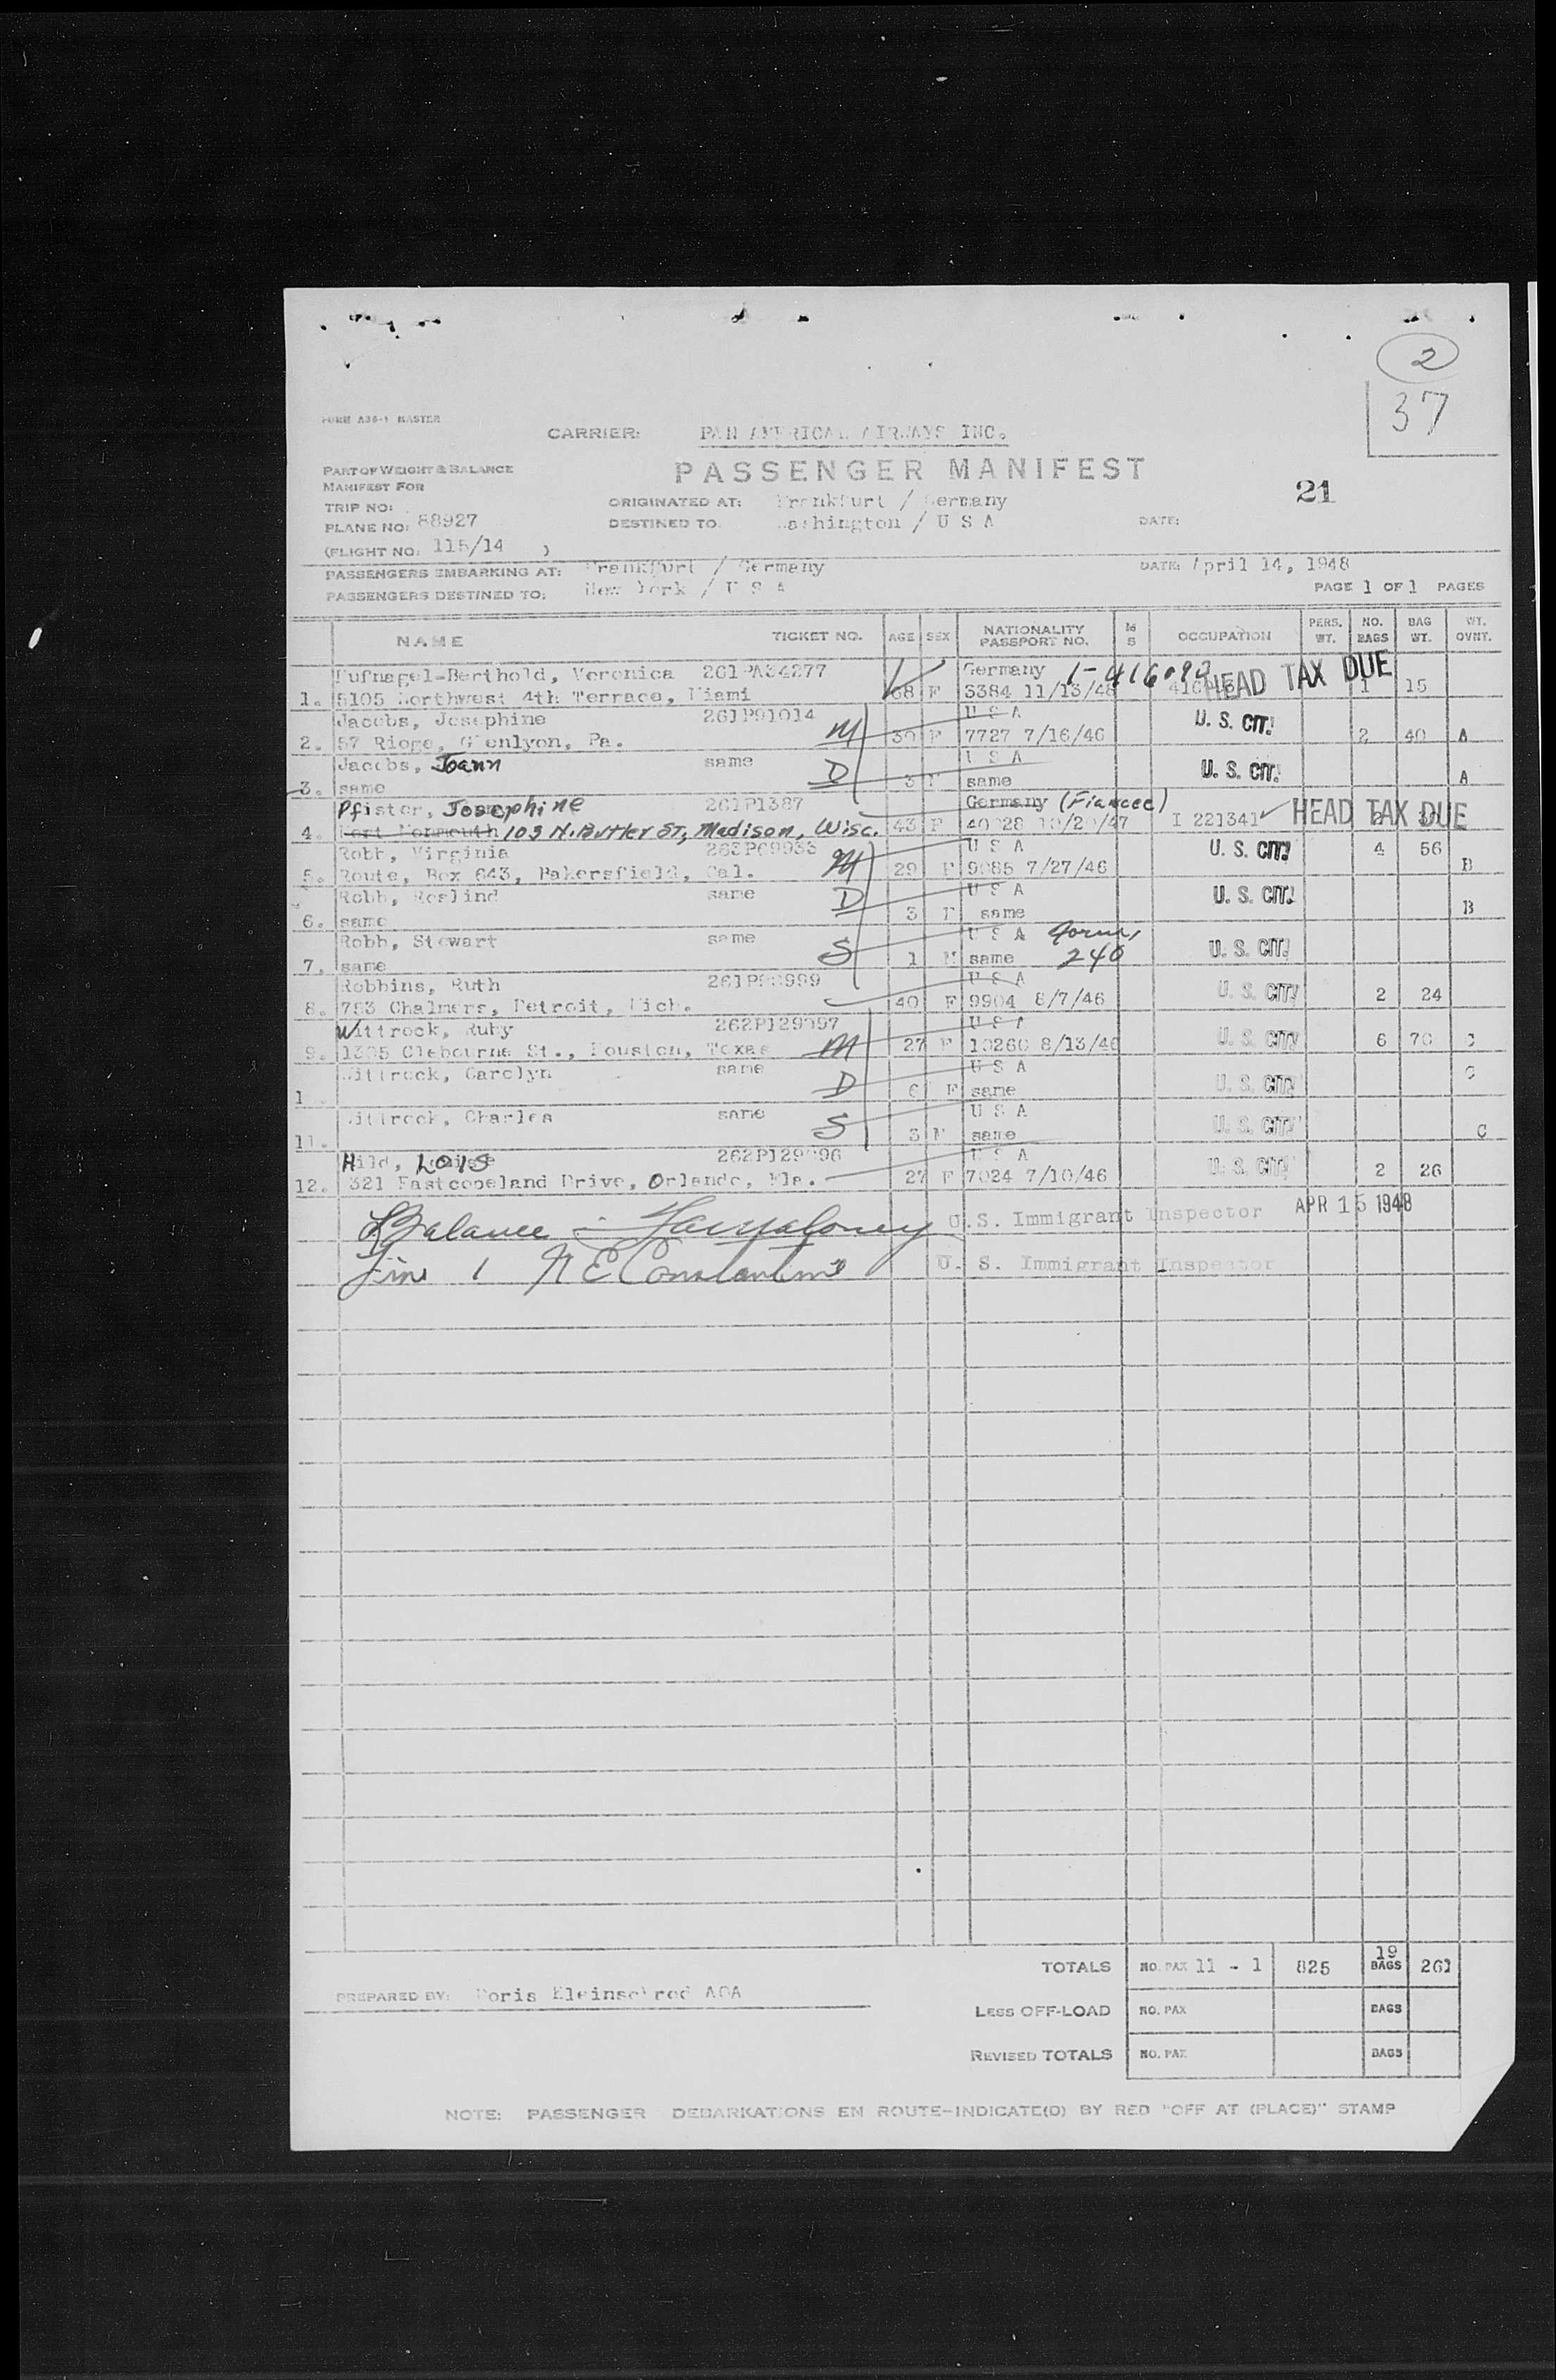 2
37
FORM A36-1 MASTER
CARRIER: PAN AMERICAN AIRWAYS INC.
PART OF WEIGHT & BALANCE
MANIFEST FOR
PASSENGER MANIFEST
21
TRIP NO:
ORIGINATED AT: Frankfurt / Germany
PLANE NO: 88927
DESTINED TO: Washington / U S A
DATE:
(FLIGHT NO: 115/14 )
PASSENGERS EMBARKING AT: Frankfurt / Germany
DATE: April 14, 1948
PASSENGERS DESTINED TO: New York / U S A
PAGE 1 OF 1 PAGES
NAME TICKET NO. AGE SEX NATIONALITY PASSPORT NO. OCCUPATION PERS. WT. NO. BAGS BAG WT. WT. OVNT.
Hufnagel-Berthold, Veronica 261PA34277 Germany HEAD TAX DUE
1. 5105 Northwest 4th Terrace, Miami 68 F 3384 11/13/48 1 15
Jacobs, Josephine 261P91014 U S A U. S. CIT.
2. 57 Glenlyon, Pa. M 30 F 7727 7/16/46 2 40 A
Jacobs, Joann same U S A U. S. CIT.
3. same D 3 F same A
Pfister, Josephine 261P1387 Germany (Fiancee) HEAD TAX DUE
4. Fort Monmouth 103 N. Butler St, Madison, Wisc. 43 F I 221341
Robb, Virginia U S A U. S. CIT. 4 56
5. Route, Box 643, Bakersfield, Cal. M 29 F 9085 7/27/46 B
Robb, Roslind same U S A U. S. CIT.
6. same D 3 F same B
Robb, Stewart same U S A Form U. S. CIT.
7. same S 1 M same 240
Robbins, Ruth U S A U. S. CIT
8. 793 Chalmers, Detroit, Mich. 40 F 9904 8/7/46 2 24
Wittrock, Ruby 262P129097 U S A U. S. CIT
9. 1305 Clebourne St., Houston, Texas M 27 F 10260 8/13/46 6 70 C
Wittrock, Carolyn same U S A U. S. CIT
1 D 6 F same C
Wittrock, Charles same U S A U. S. CIT
11. S 3 M same C
Hild, Lois 262P129096 U S A U. S. CIT
12. 321 Eastcopeland Drive, Orlando, Fla. 27 F 7024 7/10/46 2 26
Balance - U.S. Immigrant Inspector APR 15 1948
Line 1 N E Constantine U. S. Immigrant Inspector
TOTALS NO. PAX 11 - 1 825 19 BAGS 261
PREPARED BY: Doris Kleinschrod AOA
LESS OFF-LOAD NO. PAX BAGS
REVISED TOTALS NO. PAX BAGS
NOTE: PASSENGER DEBARKATIONS EN ROUTE-INDICATE(D) BY RED "OFF AT (PLACE)" STAMP